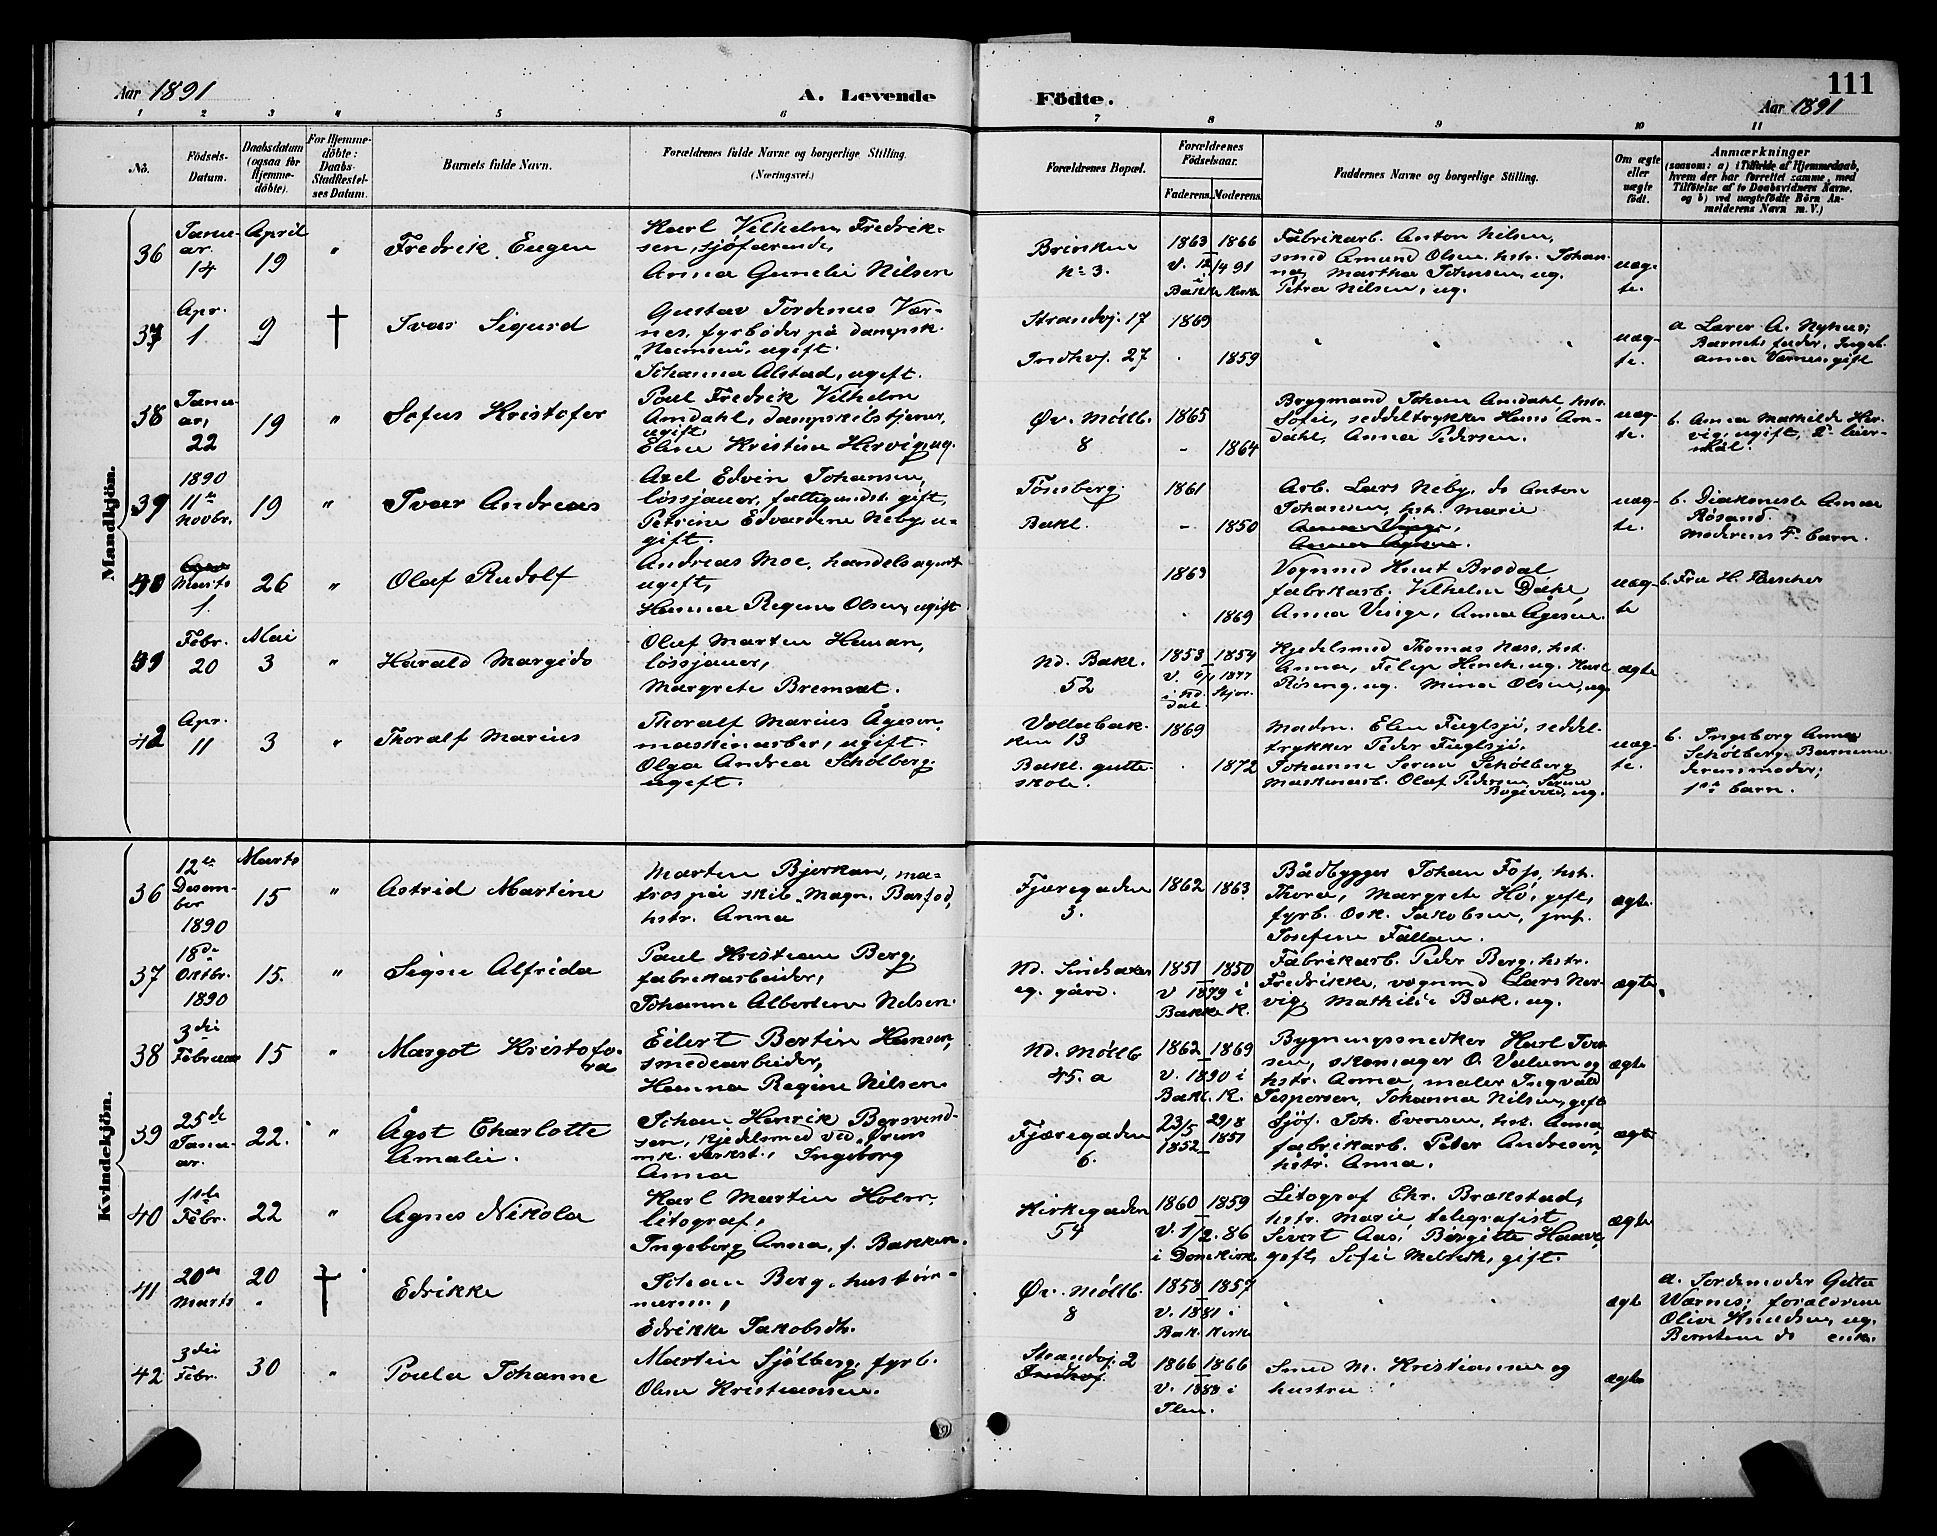 111
Aar 1891 A. Levende Födte. Aar 1891
1 2 3 4 5 6 7 8 9 10 11
No.
Födsels-
Datum.
Daabsdatum
(ogsaa for
Hjemme-
döbte).
For Hjemme-
döbte:
Daabs-
Stadfæstel-
ses Datum.
Barnets fulde Navn.
Forældrenes fulde Navne og borgerlige Stilling.
(Næringsvei.)
Forældrenes Bopæl.
Forældrenes
Födselsaar.
Faderens. Moderens.
Faddernes Navne og borgerlige Stilling.
Om ægte
eller
uægte
födt.
Anmærkninger
(saasom: a) i Tilfælde af Hjemmedaab,
hvem der har forrettet samme, med
Tilföielse af to Daabsvidners Navne.
og b) ved uægtefödte Börn An-
melderens Navn m. V.)
Mandkjön.
36
Janu-
ar.
14
April
19
"
Fredrik Eugen
Karl Vilhelm Fredrik-
sen, sjöfarende,
Anna Gunelie Nilsen
Brinken
No 3.
1863 1866
V. 12/4 91
i
Bakke Kirke
Fabrikarb. Anton Nilsen,
smed Amund Olsen, hstr. Johan-
na, Martha Johnsen, ug.
Petra Nilsen, ug.
uæg-
te.
37
Apr.
1
9
†
Ivar Sigurd
Gustav Tordenus Vær-
nes, fyrböder på dampsk.
ugift.
Johanna Alstad, ugift.
Strandvj. 17
Indhvj. 27
1869
1859
uæg-
te.
a Lærer A. Nyhus;
Barnets fader, Inge-
anna Værnes, gift
38
Janu-
ar,
22
19
"
Sofus Kristofer
Paul Fredrik Vilhelm
Amdahl, dampskibstjener,
ugift,
Eline Kristine Hervig, ug.
Øv. Möllb.
8
1865
- 1864
Brygmand Johan Amdahl, hstr.
Sofie, seddeltrykker Hans Am-
dahl, Anna Pedersen.
uæg-
te.
b. Anna Mathilde Her-
vig, ugift, 2. leier-
mål.
39
1890
11te
Novbr.
19
"
Ivar Andreas
Axel Edvin Johansen,
lössjauer, fattigundst. gift,
Petrine Edvardine Neby, u-
gift.
Tönsberg.
Bakl.
1861
- 1850
Arb. Lars Neby, do Anton
Johansen, hst. Marie
Anna Vinge,
Anna Ågesen.
uæg-
te.
b. Diakonesse Anna
Røsand.
Moderens 4. barn.
40
Marts
1.
26
"
Olaf Rudolf
Andreas Moe, handelsagent
ugift,
Hanna Regine Olsen, ugift
1863
1869
Vognmd Knut Brodal
fabrikarb. Vilhelm Dahl,
Anna Vinge, Anna Ågesen.
uæg-
te
b. Fru H. Fischer
Febr.
20
Mai
3
"
Harald Margido
Olaf Marten Hanan,
lössjauer,
Margrete Bremset.
Nd. Bakl.
52
1853 1854
V. 6/1 1877
i Nd. Stjor.
dal.
Kjedelsmed Thomas Næss, hst.
Anna, Filip Hinck, ug. Karl
Röseng, ug. Mina Olsen, ug.
ægte
42
Apr.
11
3
"
Thoralf Marius
Thoralf Marius Ågesen,
maskinarber, ugift.
Olga Andrea Schölberg,
ugift.
Vollabak-
ken 13
Bakl. gutte-
skole.
1869
1872
Madm. Elen Fuglsjö, seddel-
trykker Peder Fuglsjö,
Johanne Serine Schölberg
Maskinarb. Olaf Pedersen, Serine
ug.
uæg-
te.
b. Ingeborg Anna
Schölberg, Barnemo-
derens moder;
1ste barn.
Kvindekjön.
36
12te
Desem-
ber
1890
Marts
15
"
Astrid Martine
Marten Bjerkan, ma-
tros på skib "Magn. Barfod,
hstr. Anna
Fjæregaden
3.
1862 1863
Bådbygger Johan Foss, hst.
Thora, Margrete Hö, gift,
fyrb. Osk. Jakobsen, jmf.
Josefine Fallan.
ægte.
37
18de
Oktbr.
1890
15.
"
Signe Alfrida
Paul Kristian Berg,
fabrikarbeider,
Johanne Albertine Nilsen.
Nd. Sindsaker
eg. gård.
1851 1850
V 1879 i
Bakke K.
Fabrikarb. Peder Berg, hstr.
Fredrikke, vognmd Lars Her-
vig, Mathilde Bak, ug.
ægte.
38
3die
Februar
15
"
Margot Kristofo-
ra
Eilert Bertin Hansen,
smedearbeider,
Hanna Regine Nilsen
Nd. Möllb
45. a
1862 1869
V. 1890 i
Bakl. K.
Bygningssnedker Karl Iver
sen, skomager O. Valum og
hstr. Anna, maler Ingvald
Jespersen, Johanna Nilsen, gift
ægte
39
25de
Janu-
ar.
22.
"
Ågot Charlotte
Amalie.
Johan Henrik Bersvend-
sen, kjedelsmed ved Trms
mk. værkst., Ingeborg
Anna
Fjæregaden
6.
23/5 29/8
1852 1851
Sjöf. Joh. Evensen, hst. Anna,
fabrikarb. Peter Andresen,
hstr. Anna.
ægte
40
1ste
Febr.
22
"
Agnes Nikola
Karl Martin Holm,
litograf,
Ingeborg Anna, f. Bakken.
Kirkegaden
54
1860 1859
V. 1/2. 86
i Domkirk.
Litograf Chr. Brækstad,
hstr. Marie, telegrafist
Sivert Aas, Birgitte Haave,
gift, Sofie Melvik, gift.
ægte
41
20de
Marts
20
†
Edrikke
Johan Berg, hustöm-
mermn.,
Edrikke Jakobsdt.
Øv. Möllb.
8
1858 1857
V. 1881 i
Bak. Kirke
ægte
a. Jordemoder Gitta
Wærnes; forældrene
Olive Knudsen, ug.
Berntine do enke.
42
3die
Febr.
30
"
Paula Johanne
Martin Sjölberg, fyrb.
Oline Kristiansen.
Strandvj. 2
Indhvj.
1866 1866
V. 1889 i
Ilen.
Smed M. Kristiansen og
hustru
ægte